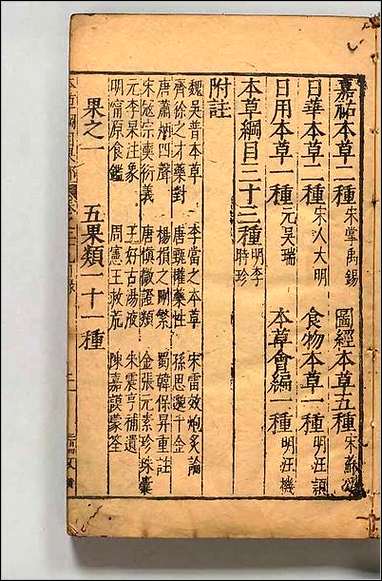 嘉祐本草二種 宋掌禹錫 圖經本草五種 宋蘇頌
日華本草二種 宋人大明 食物本草一種 明汪穎
日用本草一種 元吳瑞 本草會編一種 明汪機
本草綱目三十三種 明李時珍
附註
魏吳普本草 李當之本草 宋雷斅炮炙論
齊徐之才藥對 唐甄權藥性 孫思邈千金
唐蕭炳四聲 楊損之刪繁 蜀韓保昇重註
宋寇宗奭衍義 唐慎微證類 金張元素珍珠囊
元李杲法象 王好古湯液 朱震亨補遺
明甯原食鑑 周憲王救荒 陳嘉謨蒙筌
果之一 五果類一十一種